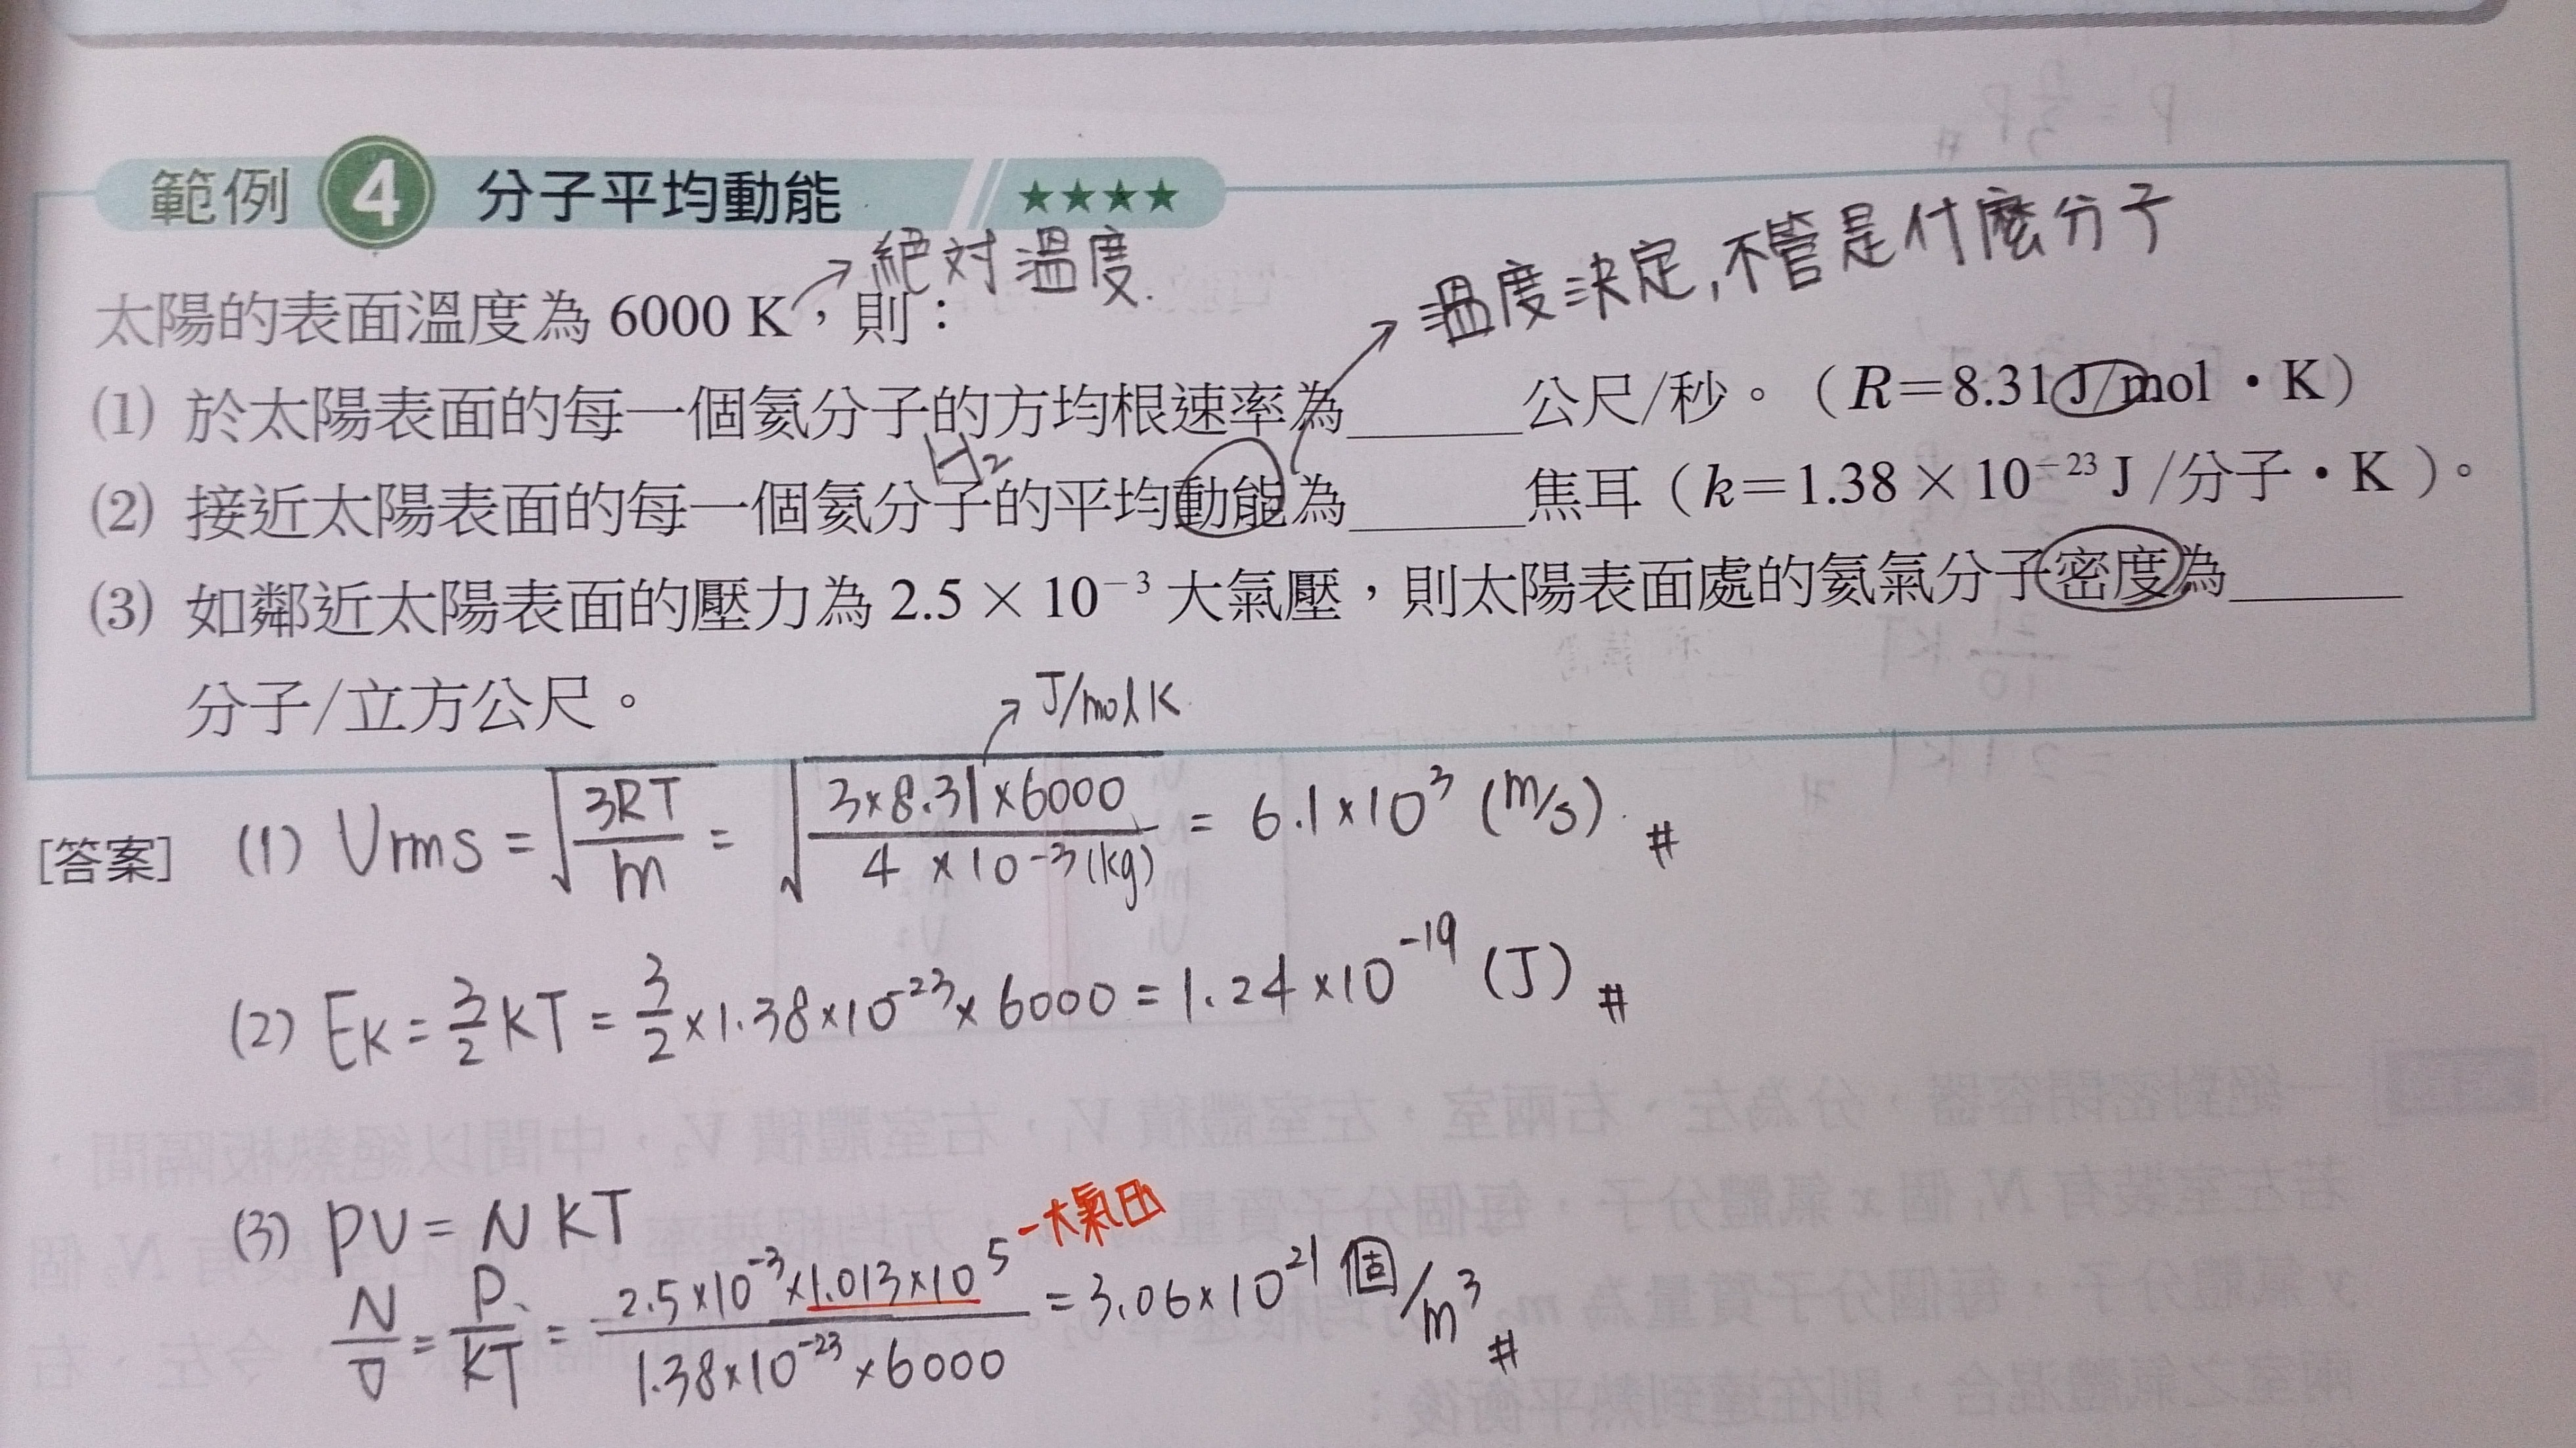 範例 4 分子平均動能 ★★★★
絕对溫度.
溫度決定,不管是什麼分子
太陽的表面溫度為 6000 K,則:
(1) 於太陽表面的每一個氦分子的方均根速率為______公尺/秒。(R=8.31 J/mol·K)
H₂
(2) 接近太陽表面的每一個氦分子的平均動能為______焦耳(k=1.38 × 10⁻²³ J /分子·K)。
(3) 如鄰近太陽表面的壓力為 2.5 × 10⁻³ 大氣壓,則太陽表面處的氦氣分子密度為______
分子/立方公尺。
J/mol K
[答案] (1) Urms = √(3RT/m) = √(3×8.31×6000/4 ×10⁻³(kg)) = 6.1×10³ (m/s) #
(2) EK = 3/2 KT = 3/2 ×1.38×10⁻²³×6000 = 1.24×10⁻¹⁹ (J) #
(3) PV = NKT
一大氣压
N/V = P/KT = 2.5×10⁻³×1.013×10⁵/1.38×10⁻²³×6000 = 3.06×10²¹ 個/m³ #